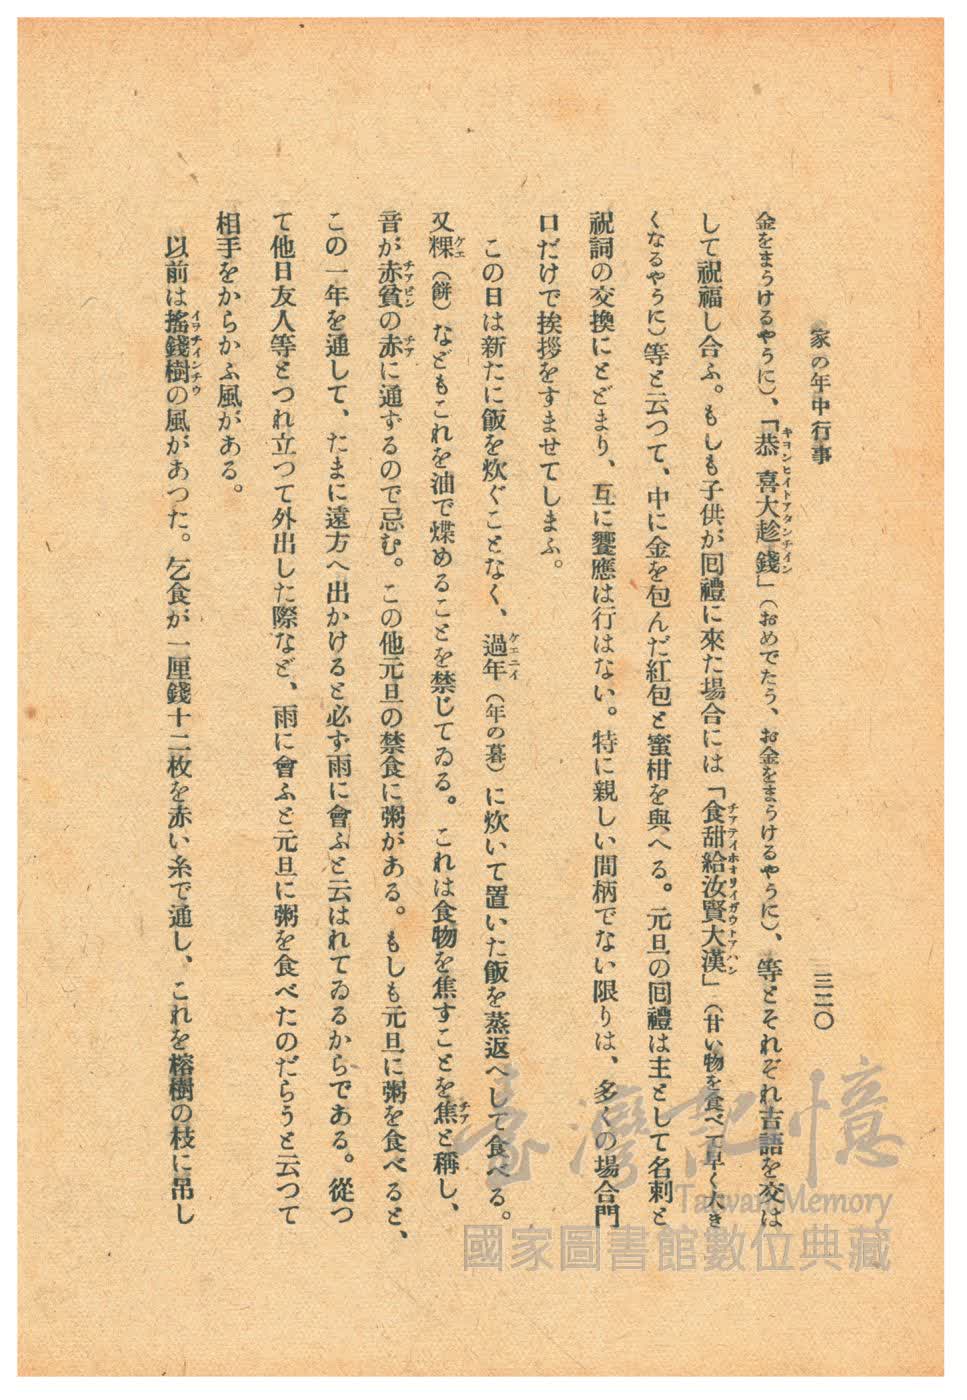 家の年中行事
三二〇
金をまうけるやうに）、「恭喜大趁錢」（おめでたう、お金をまうけるやうに）、等とそれぞれ吉語を交は
キヨンヒイトアタンチイン
して祝福し合ふ。もしも子供が回禮に來た場合には「食甜給汝賢大漢」（甘い物を食べて早く大き
チアテイホオリイガウトアハン
くなるやうに）等と云つて、中に金を包んだ紅包と蜜柑を與へる。元旦の回禮は主として名刺と
祝詞の交換にとどまり、互に饗應は行はない。特に親しい間柄でない限りは、多くの場合門
口だけで挨拶をすませてしまふ。
この日は新たに飯を炊ぐことなく、過年（年の暮）に炊いて置いた飯を蒸返へして食べる。
ケエニイ
又粿（餅）などもこれを油で煠めることを禁じてゐる。これは食物を焦すことを焦と稱し、
ケエ
チア
音が赤貧の赤に通ずるので忌む。この他元旦の禁食に粥がある。もしも元旦に粥を食べると、
チアピン
チア
この一年を通して、たまに遠方へ出かけると必ず雨に會ふと云はれてゐるからである。從つ
て他日友人等とつれ立つて外出した際など、雨に會ふと元旦に粥を食べたのだらうと云つて
相手をからかふ風がある。
以前は搖錢樹の風があつた。乞食が一厘錢十二枚を赤い糸で通し、これを榕樹の枝に吊し
イヲチインチウ
臺灣記憶
Taiwan Memory
國家圖書館數位典藏